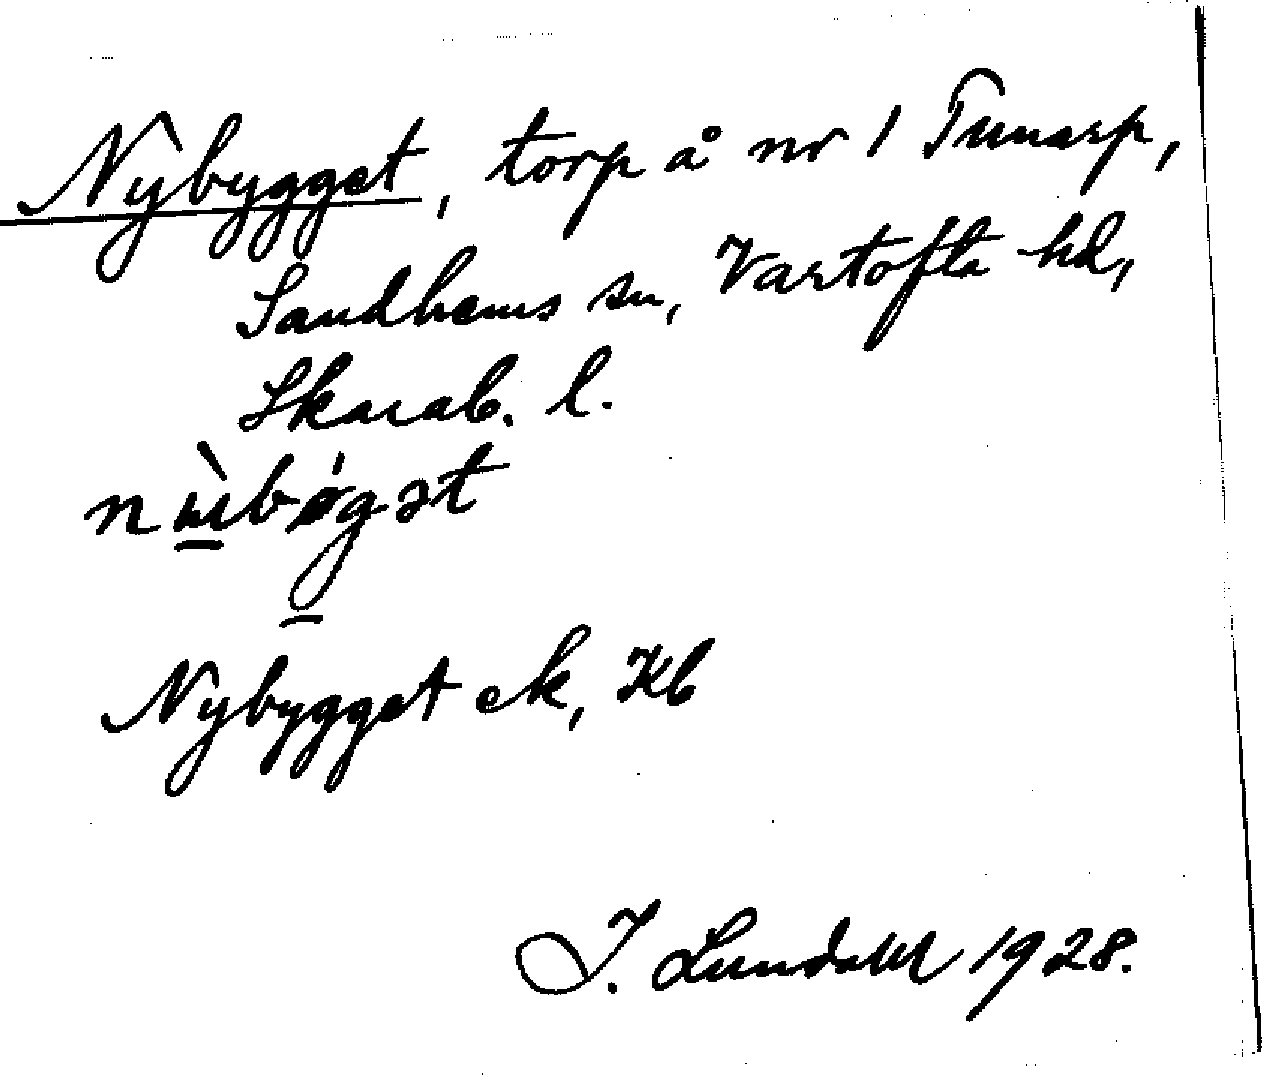 Nybygget, torp å nr 1 Tunarp,
Sandhems sn, Vartofta hd,
Skarab. l.
Nybygget ek, Kb
I. Lundahl 1928.